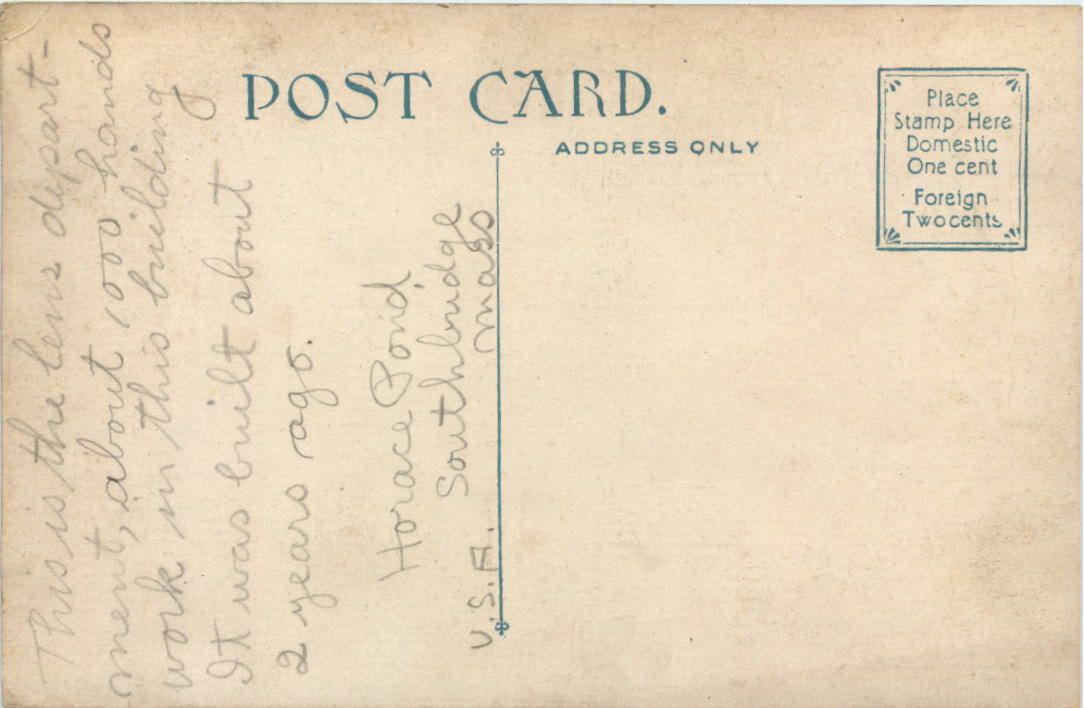 This is the lens depart-
ment, about 1000 hands
work in this building
It was built about
2 years ago.
Horace Pond
Southbridge
Mass
U.S.A.
POST CARD.
ADDRESS ONLY
Place
Stamp Here
Domestic
One cent
Foreign
Two cents